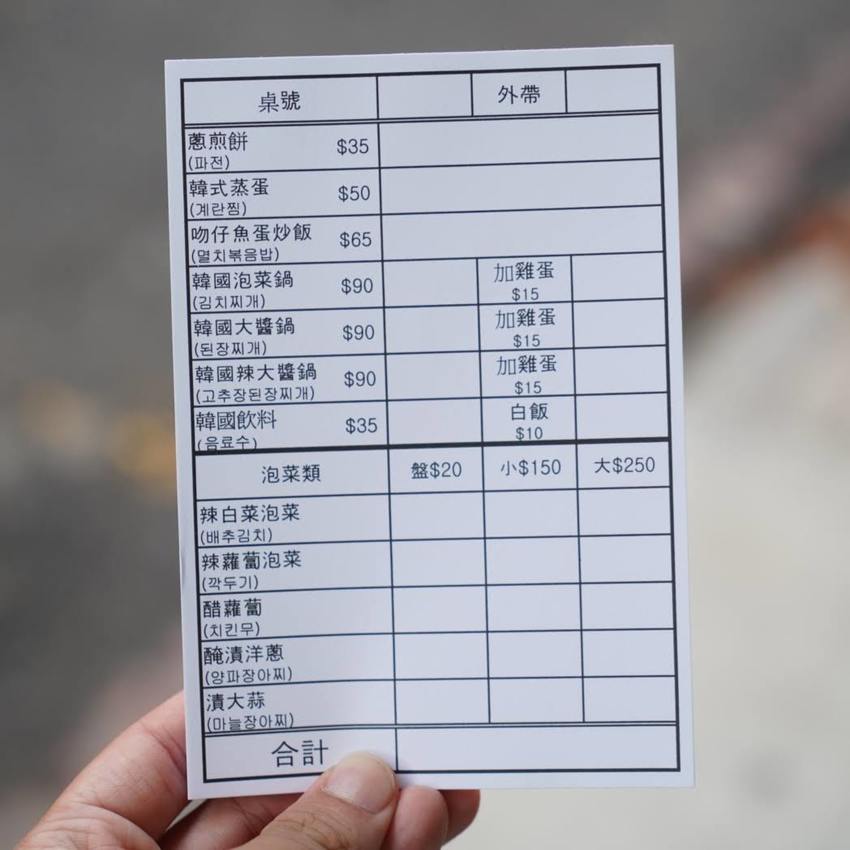 桌號 外帶
蔥煎餅 $35
(파전)
韓式蒸蛋 $50
(계란찜)
吻仔魚蛋炒飯 $65
(멸치볶음밥)
韓國泡菜鍋 $90 加雞蛋
(김치찌개) $15
韓國大醬鍋 $90 加雞蛋
(된장찌개) $15
韓國辣大醬鍋 $90 加雞蛋
(고추장된장찌개) $15
韓國飲料 $35 白飯
(음료수) $10
泡菜類 盤$20 小$150 大$250
辣白菜泡菜
(배추김치)
辣蘿蔔泡菜
(깍두기)
醋蘿蔔
(치킨무)
醃漬洋蔥
(양파장아찌)
漬大蒜
(마늘장아찌)
合計